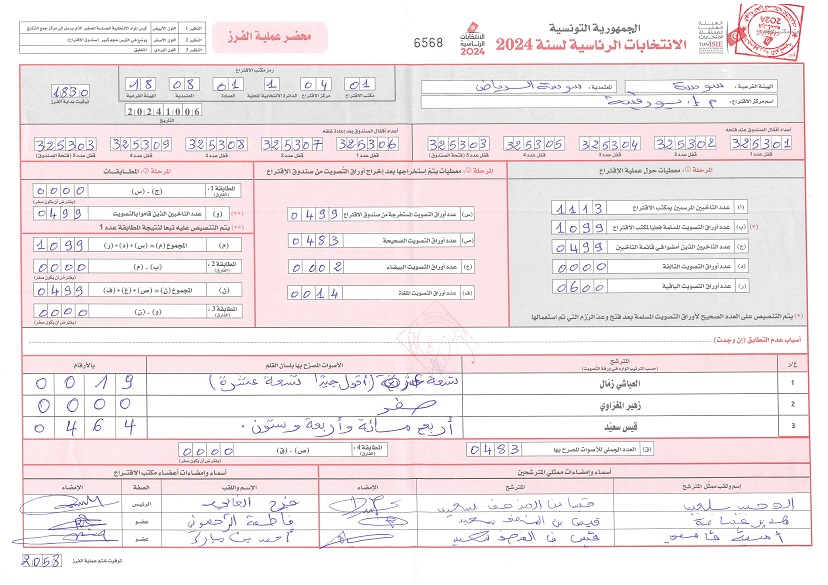 الجمهورية التونسية
الانتخابات الرئاسية لسنة 2024
الهيئة العليا المستقلة للانتخابات
TUNISIE
الانتخابات الرئاسية 2024
6568
محضر عملية الفرز
النظير 1 اللون الأبيض
النظير 2 اللون الأصفر
النظير 3 اللون الوردي
الهيئة الفرعية: سوسة المعتمدية: سوسة الرياض
اسم مركز الاقتراع:
رمز مكتب الاقتراع
18 08 01 1 04 01
الهيئة الفرعية المعتمدية العمادة الدائرة الانتخابية المحلية مركز الاقتراع مكتب الاقتراع
1830
توقيت بداية الفرز
20241006
التاريخ
أعداد أقفال الصندوق عند فتحه
325301 325302 325304 325305 325303
قفل عدد 1 قفل عدد 2 قفل عدد 3 قفل عدد 4 قفل عدد 5 (فتحة الصندوق)
أعداد أقفال الصندوق بعد إعادة غلقه
325306 325307 325308 325309 325303
قفل عدد 1 قفل عدد 2 قفل عدد 3 قفل عدد 4 قفل عدد 5 (فتحة الصندوق)
المرحلة 1: معطيات حول عملية الإقتراع
(أ) عدد الناخبين المرسمين بمكتب الاقتراع 1113
(ب) عدد أوراق التصويت المسلمة فعليا لمكتب الاقتراع 1099 (*)
(ج) عدد الناخبين الذين أمضوا في قائمة الناخبين 0499
(د) عدد أوراق التصويت التالفة 0000
(ر) عدد أوراق التصويت الباقية 0600
(*) يتم التنصيص على العدد الصحيح لأوراق التصويت المسلمة بعد فتح وعد الرزم التي تم استعمالها
المرحلة 2: معطيات يتم إستخراجها بعد إخراج أوراق التصويت من صندوق الإقتراع
(س) عدد أوراق التصويت المستخرجة من صندوق الاقتراع 0499
(ص) عدد أوراق التصويت الصحيحة 0483
(ع) عدد أوراق التصويت البيضاء 0002
(ف) عدد أوراق التصويت الملغاة 0014
المرحلة 3: المطابقات
المطابقة 1: (الفارق) (ج) - (س) 0000
(يفترض أن يكون صفر)
(**) (و) عدد الناخبين الذين قاموا بالتصويت 0499
(**) يتم التنصيص عليه تبعا لنتيجة المطابقة عدد 1
(م) المجموع (م) = (س) + (د) + (ر) 1099
المطابقة 2: (الفارق) (ب) - (م) 0000
(يفترض أن يكون صفر)
(ن) المجموع (ن) = (ص) + (ع) + (ف) 0499
المطابقة 3: (الفارق) (و) - (ن) 0000
(يفترض أن يكون صفر)
أسباب عدم التطابق (إن وجدت)
ع/د المترشح الأصوات المصرح بها بلسان القلم بالأرقام
(حسب الترتيب الوارد في ورقة التصويت)
1 العياشي زمّال تسعة عشرة (أقول جيدا تسعة عشرة) 0019
2 زهير المغزاوي صفر 0000
3 قيس سعيّد أربع مائة وأربعة وستون. 0464
(ق) العدد الجملي للأصوات المصرح بها 0483
المطابقة 4: (الفارق) (ص) - (ق) 0000
(يفترض أن يكون صفر)
أسماء وإمضاءات ممثلي المترشحين
إسم ولقب ممثل المترشح المترشح الإمضاء
قيس بن المنصف سعيد
قيس بن المنصف سعيد
قيس بن المنصف سعيد
أسماء وإمضاءات أعضاء مكتب الاقتراع
الإسم واللقب الصفة الإمضاء
الرئيس
فاطمة عضو
أحمد بن مبارك عضو
توقيت ختم عملية الفرز 2058